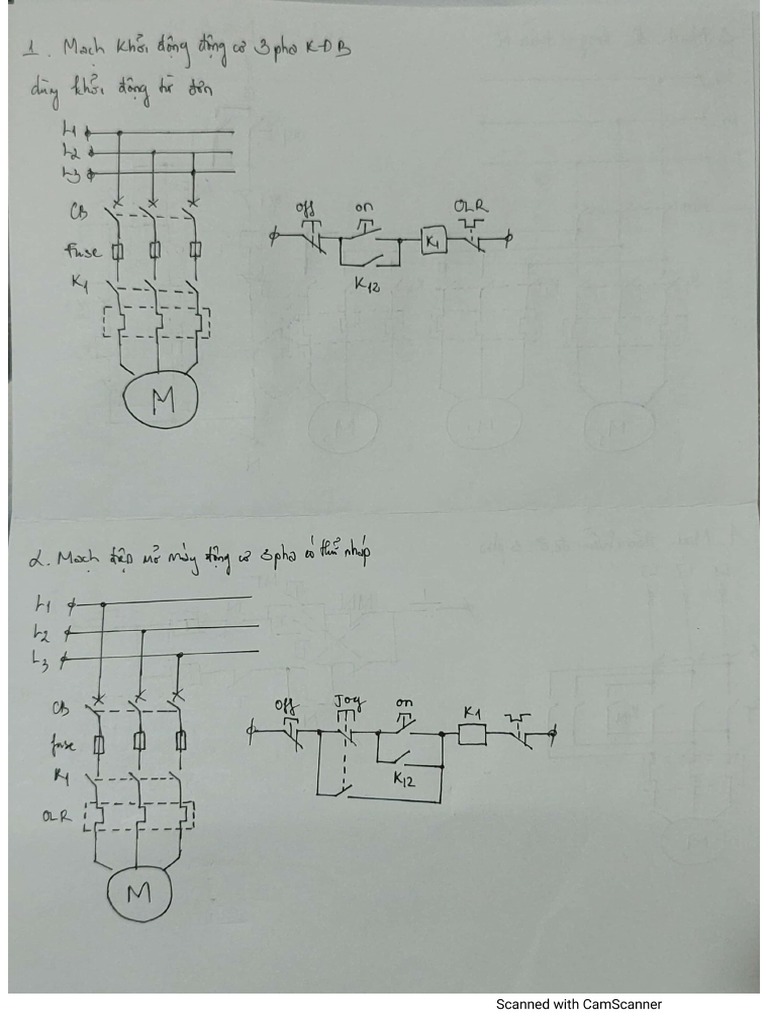 1. Mạch khởi động động cơ 3 pha KĐB
dùng khởi động từ đơn
L1
L2
L3
CB
Fuse
K1
M
Off
on
OLR
K1
K12
2. Mạch điện mở máy động cơ 3 pha có thử nhấp
L1
L2
L3
CB
fuse
K1
OLR
M
Off
Jog
on
K1
K12
Scanned with CamScanner